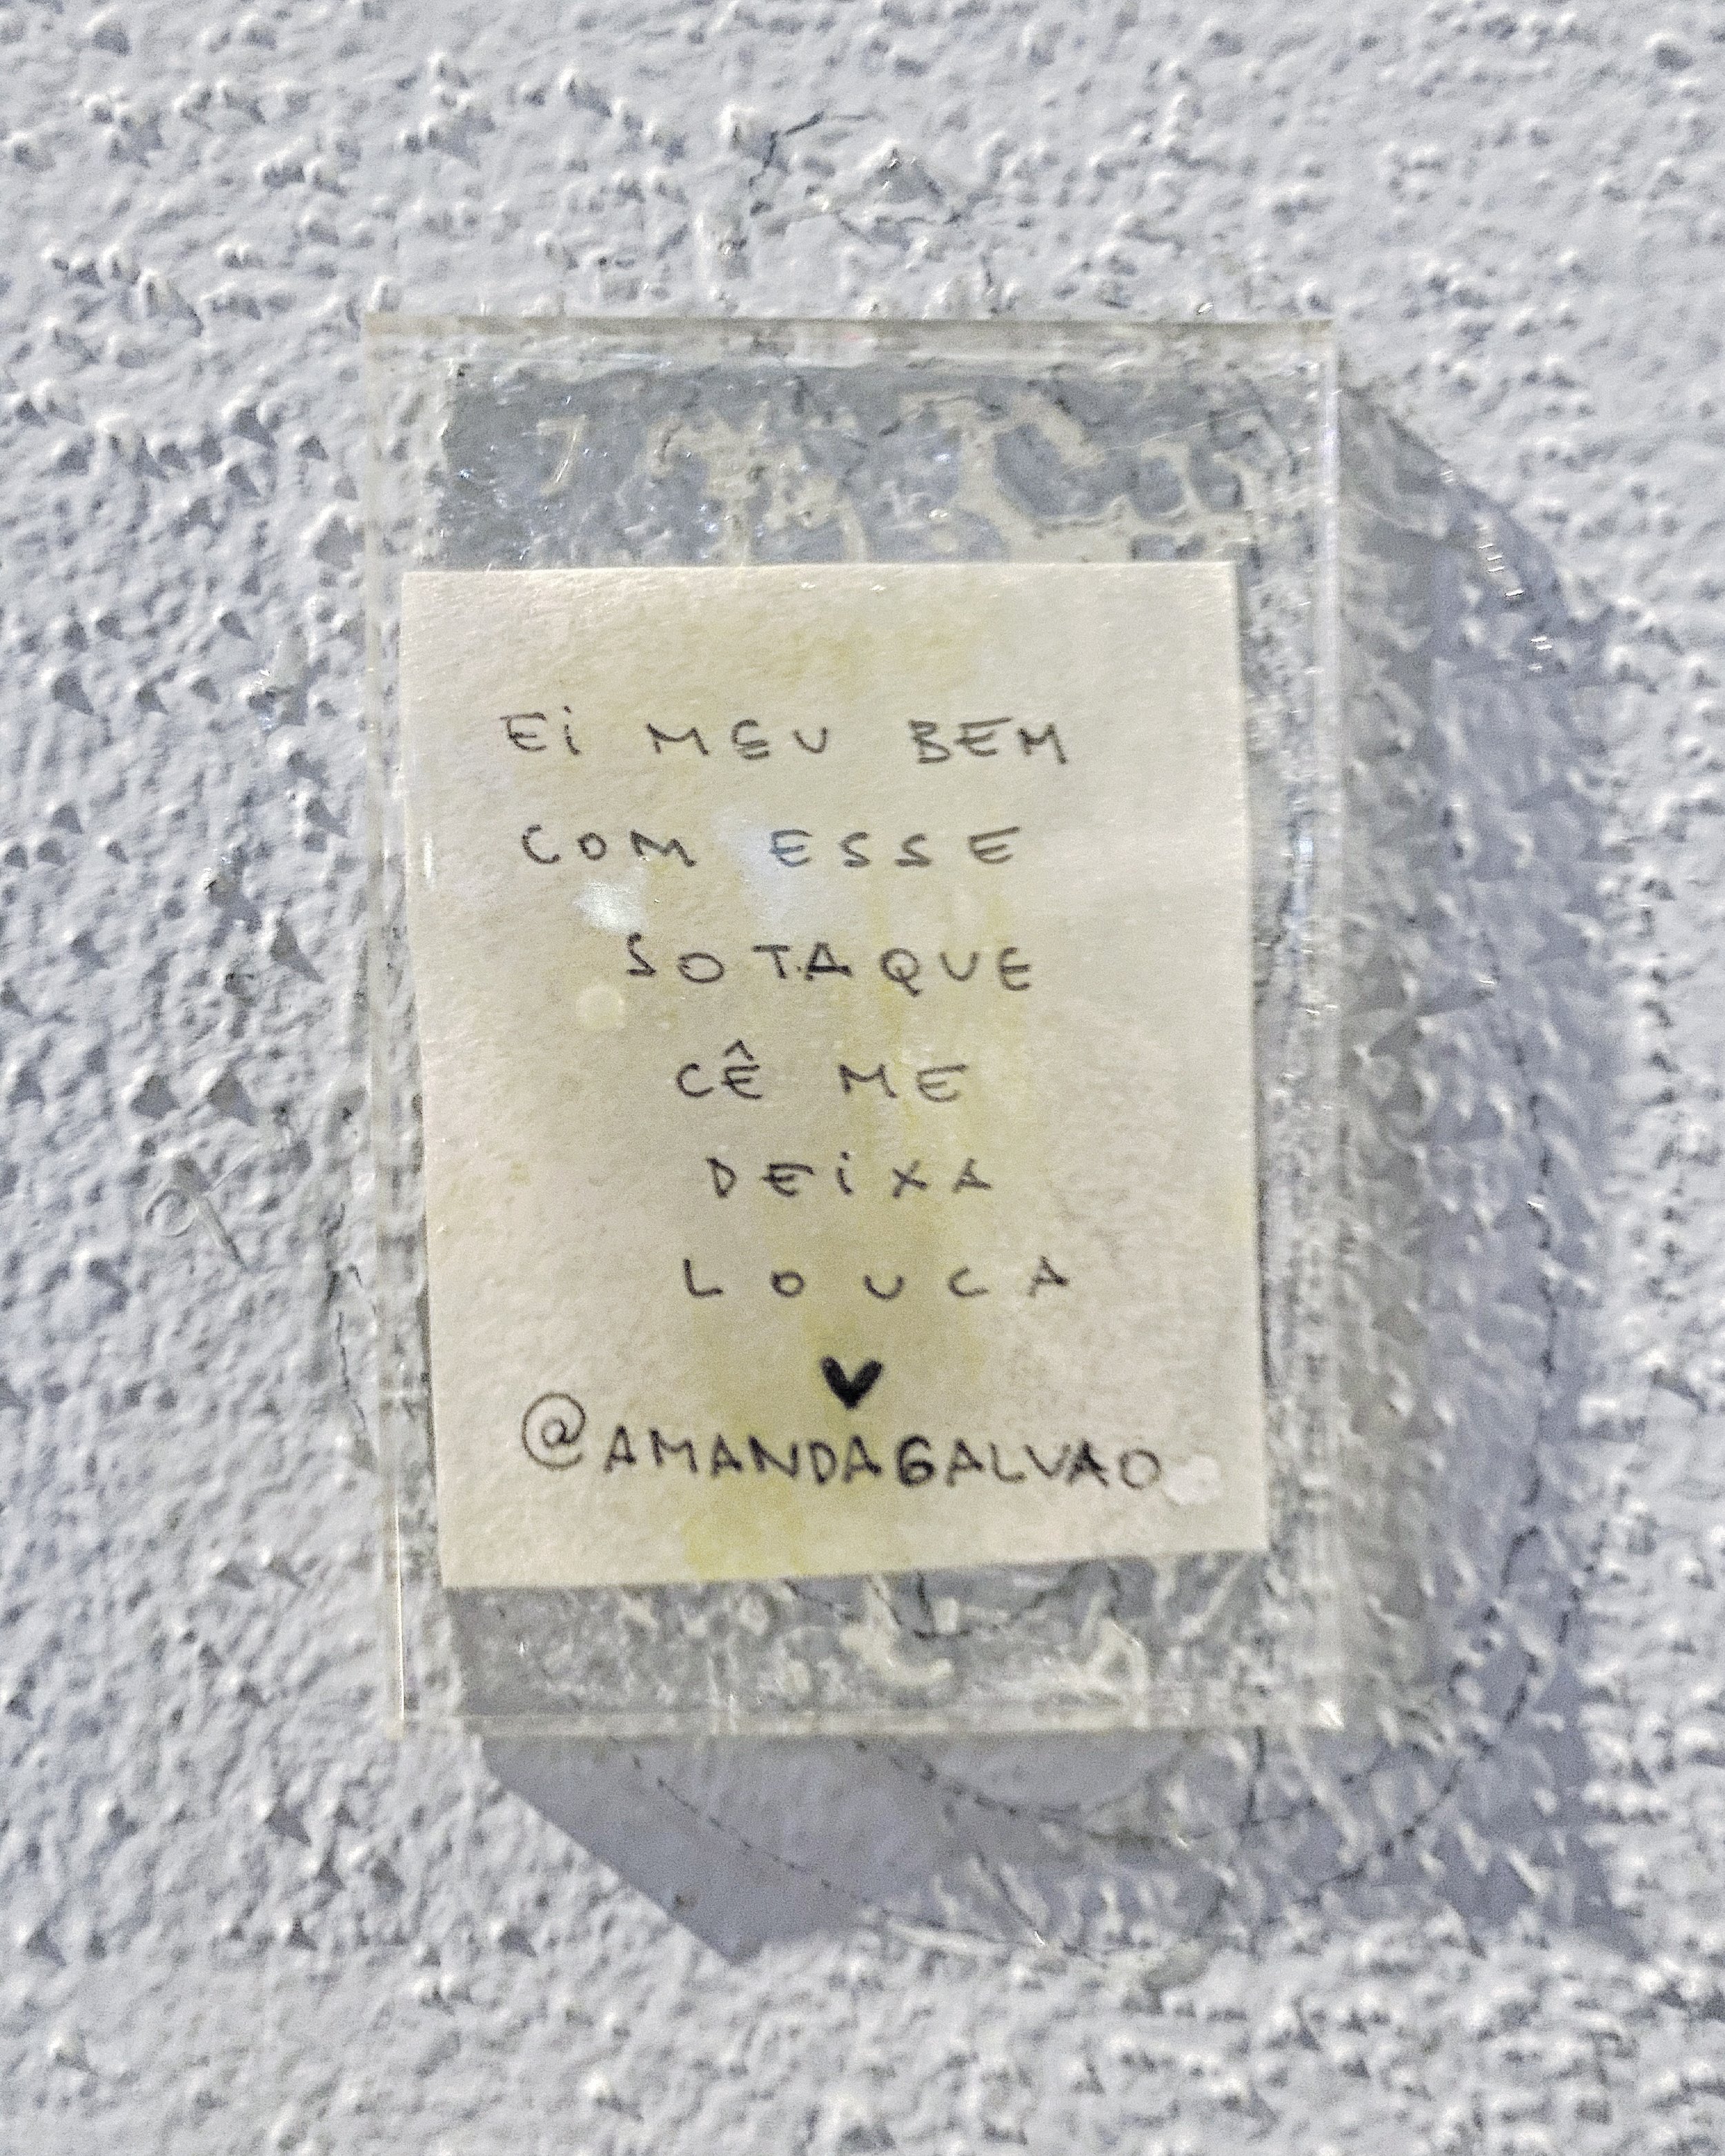 Ei MEU BEM
COM ESSE
SOTAQUE
CÊ ME
DEiXA
LOUCA
♥
@AMANDAGALVAO